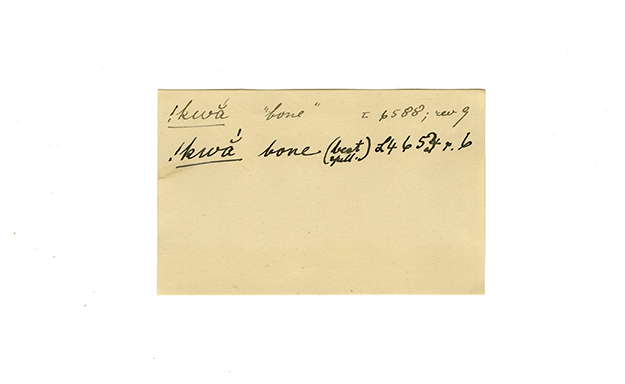 !kwắ "bone" L 6588; rev 9
!kwắ bone (best spell.) L4 6524 r. 6